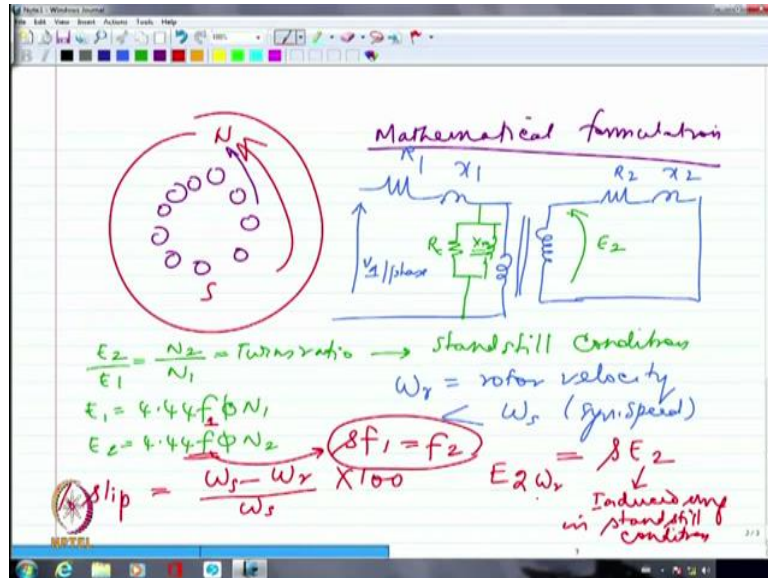 Note1 - Windows Journal
File Edit View Insert Actions Tools Help
N
S
Mathematical formulation
R1 x1 R2 x2
V1/phase
Rc Xm
E2
E2/E1 = N2/N1 = Turns ratio → Standstill Condition
E1 = 4.44 f1 ϕ N1
E2 = 4.44 f ϕ N2
ωr = rotor velocity
< ωs (syn. speed)
sf1 = f2
% slip = (ωs - ωr)/ωs X100
E2ωr = sE2
Induced emf
in standstill
condition
NPTEL
2/2